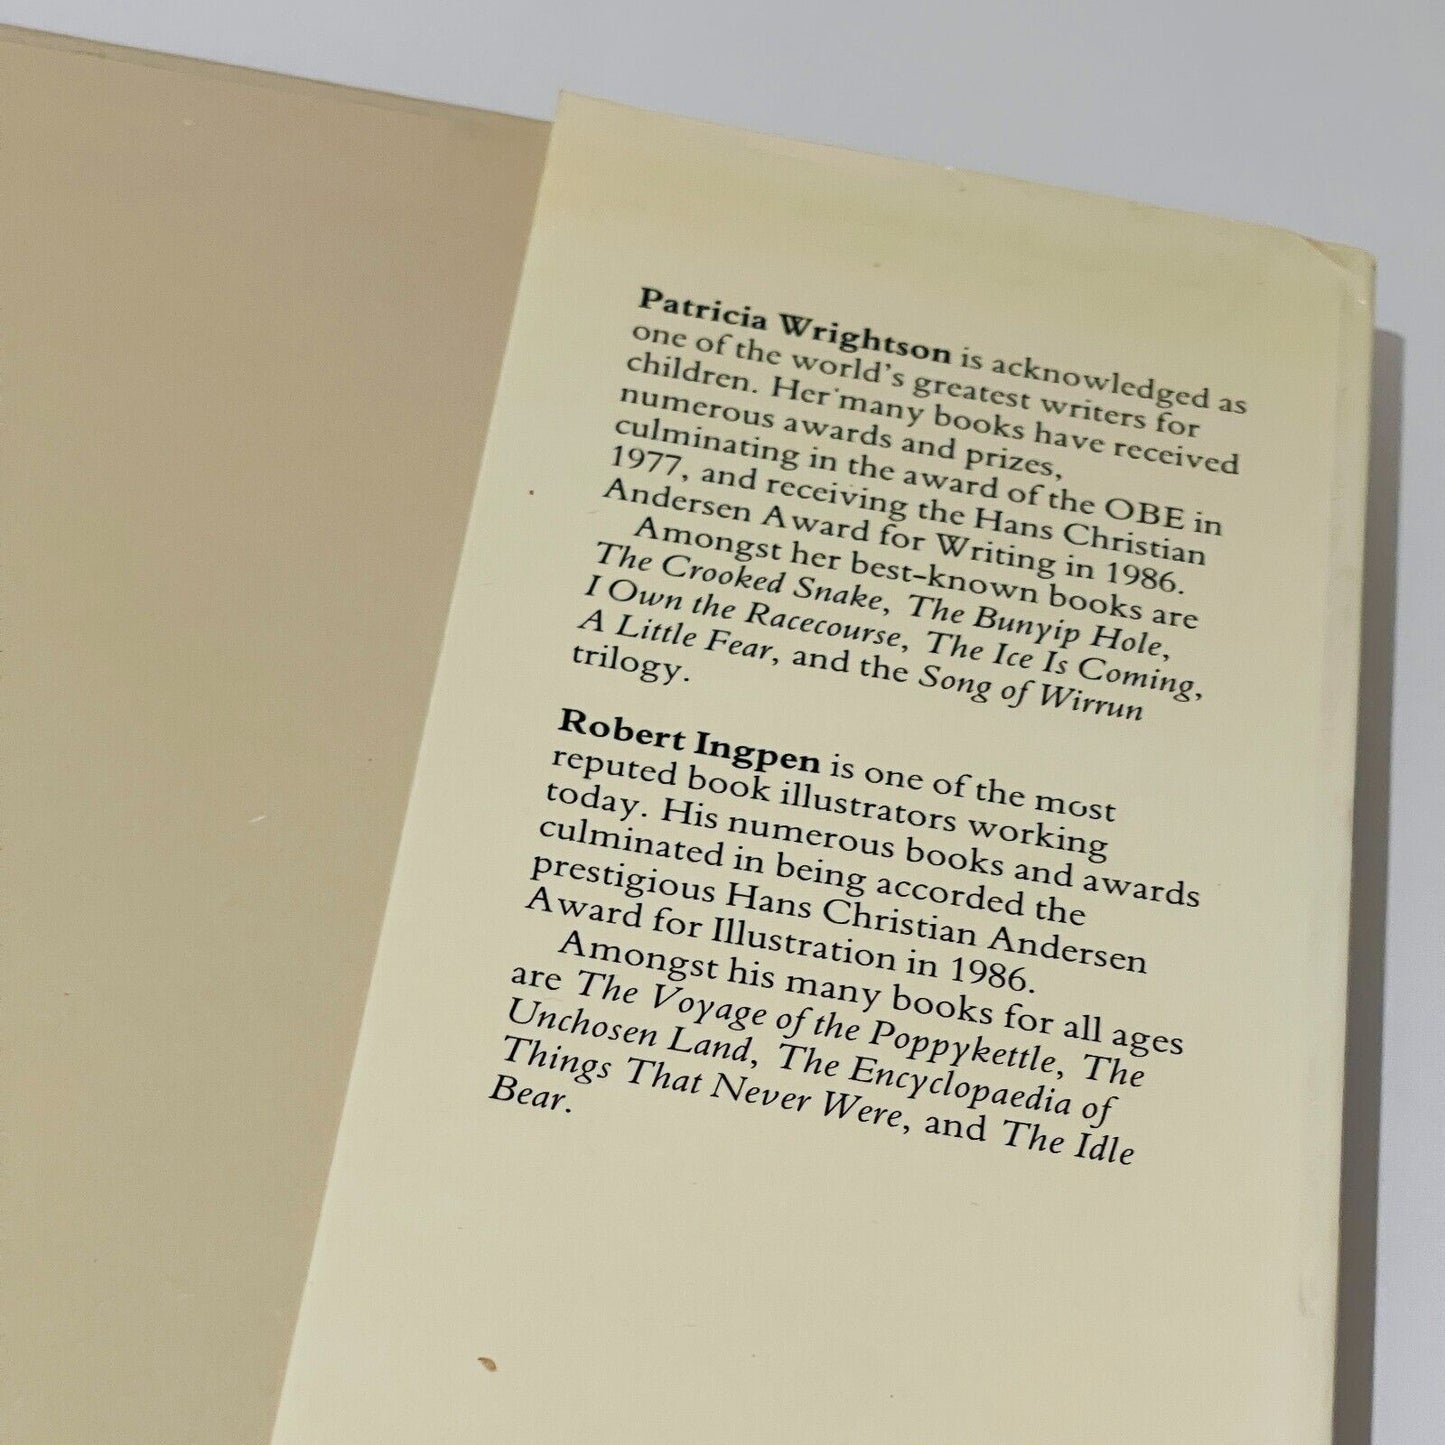 Patricia Wrightson is acknowledged as
one of the world's greatest writers for
children. Her many books have received
numerous awards and prizes,
culminating in the award of the OBE in
1977, and receiving the Hans Christian
Andersen Award for Writing in 1986.
Amongst her best-known books are
The Crooked Snake, The Bunyip Hole,
I Own the Racecourse, The Ice Is Coming,
A Little Fear, and the Song of Wirrun
trilogy.
Robert Ingpen is one of the most
reputed book illustrators working
today. His numerous books and awards
culminated in being accorded the
prestigious Hans Christian Andersen
Award for Illustration in 1986.
Amongst his many books for all ages
are The Voyage of the Poppykettle, The
Unchosen Land, The Encyclopaedia of
Things That Never Were, and The Idle
Bear.